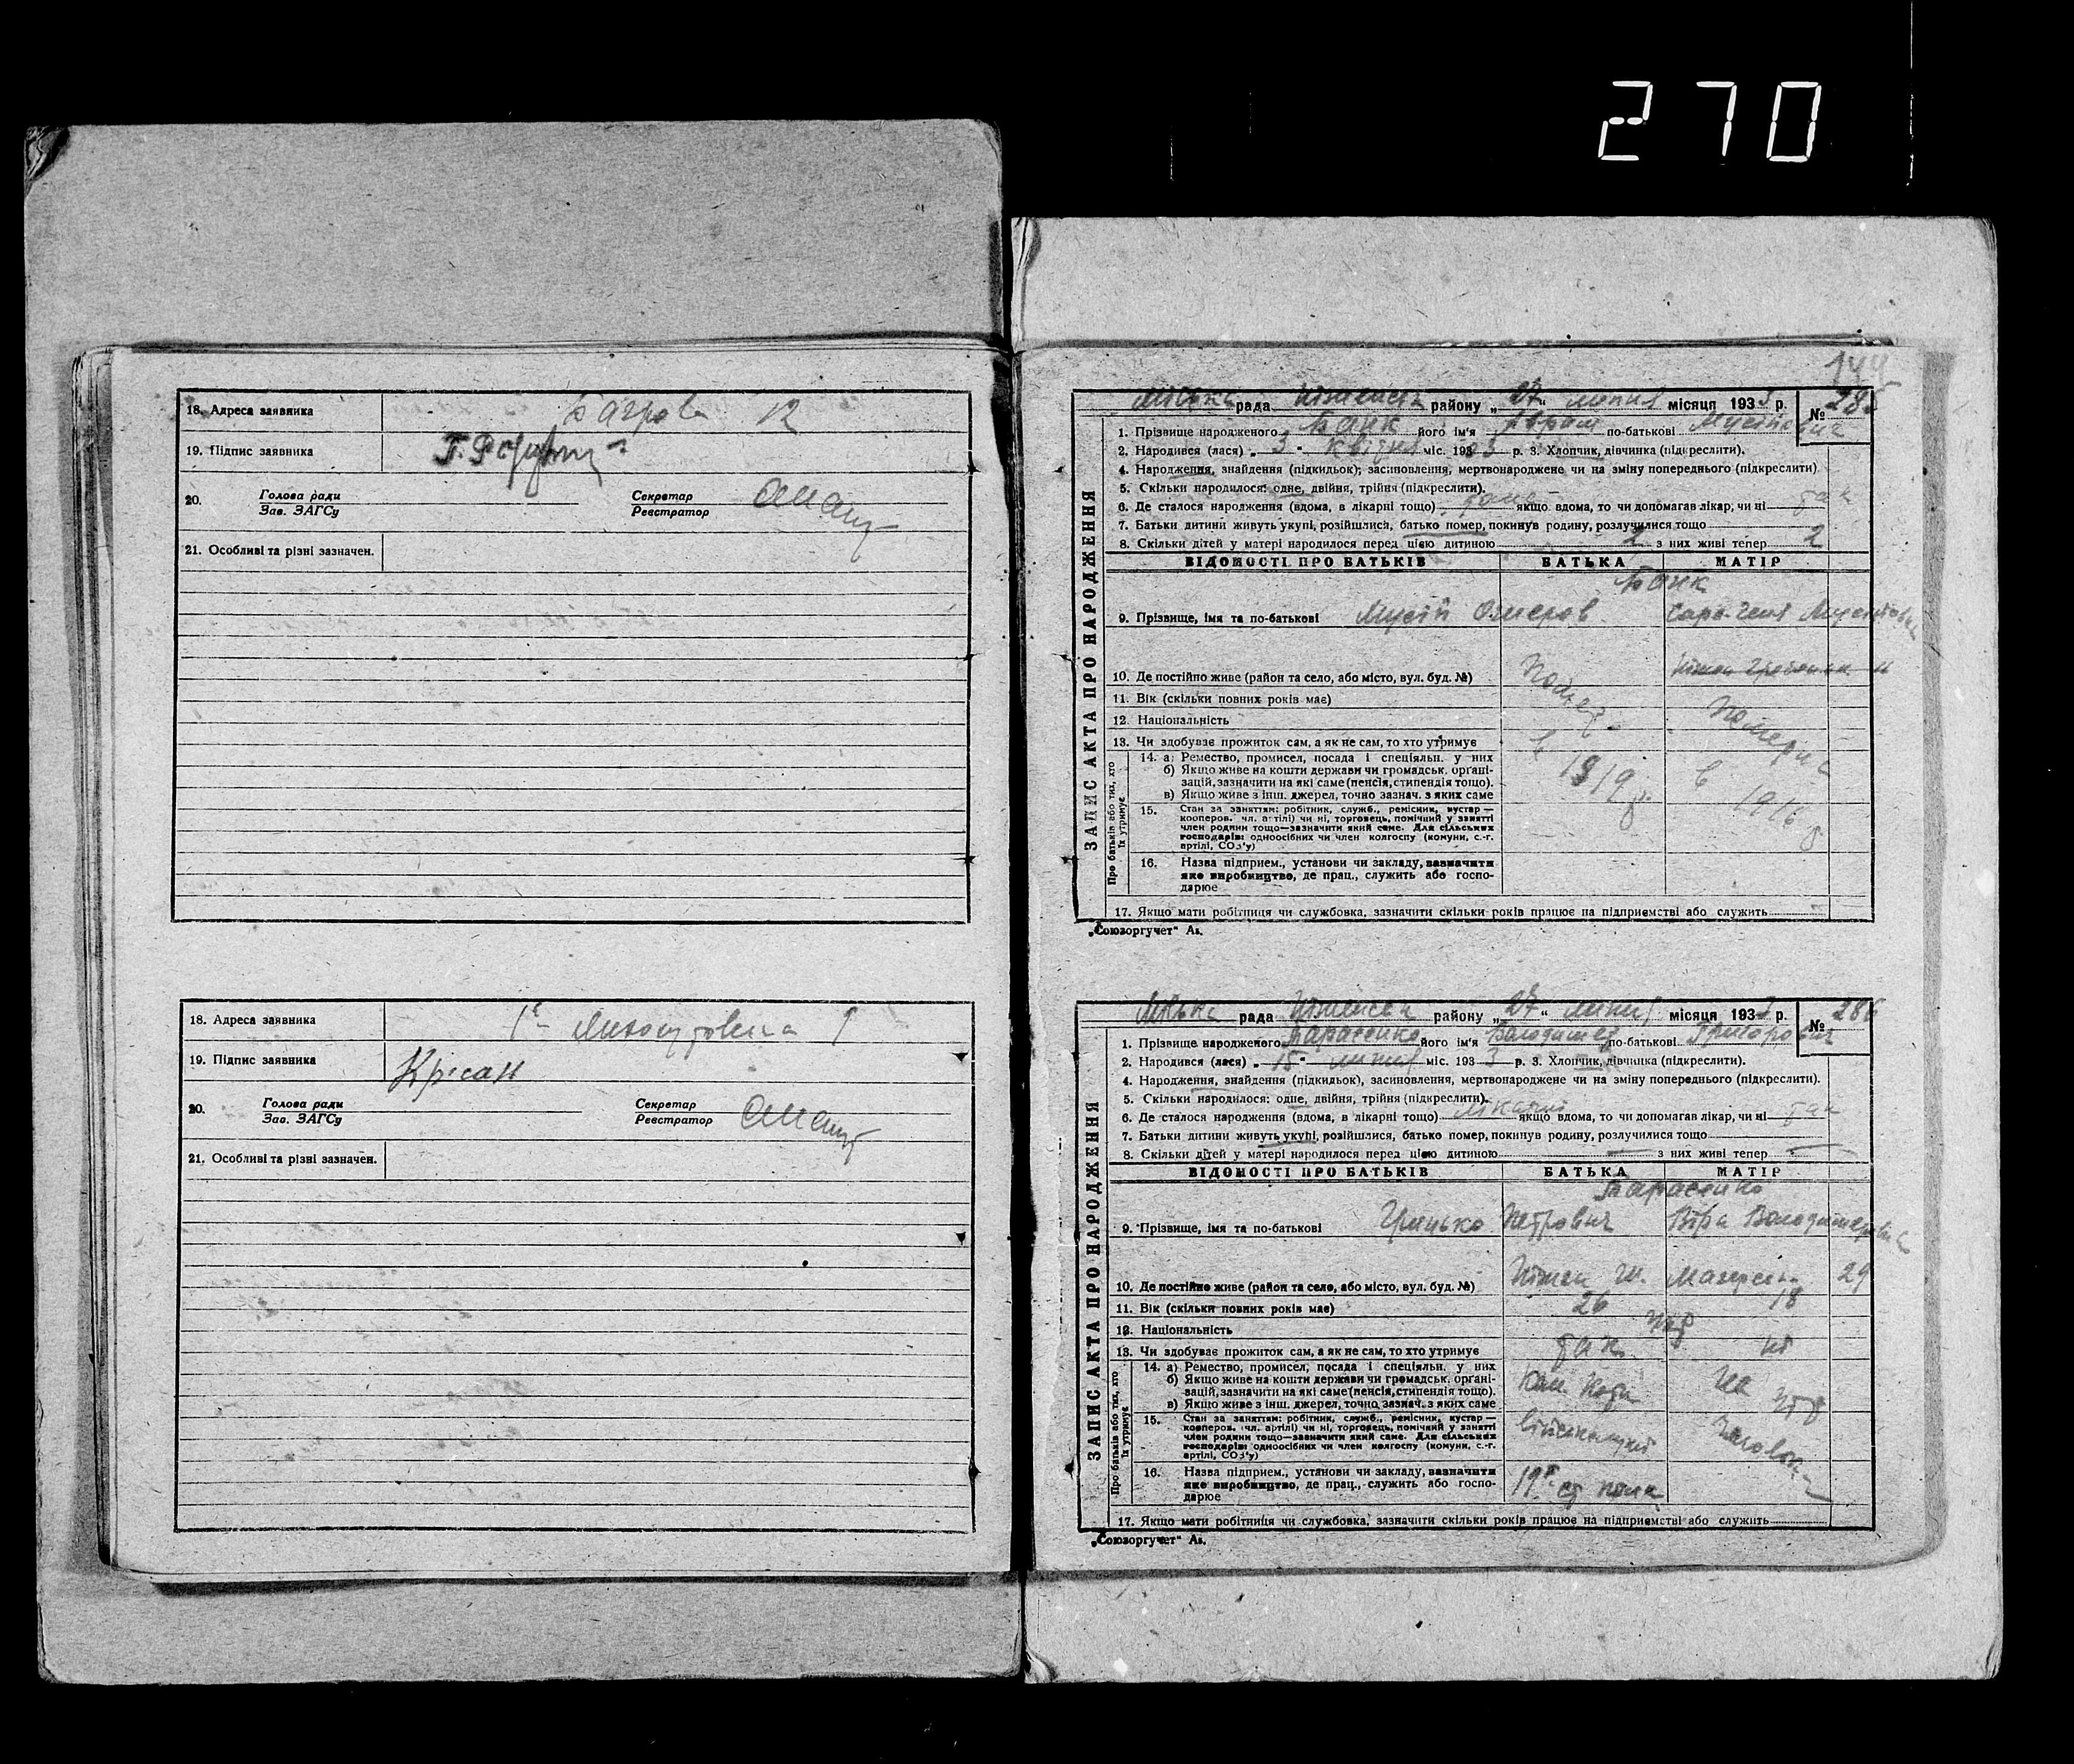 270
18. Адреса заявника Багрова 12
19. Підпис заявника
20. Голова ради
Зав. ЗАГСу
Секретар
Реєстратор
21. Особливі та різні зазначен.
18. Адреса заявника
19. Підпис заявника Крісан
20. Голова ради
Зав. ЗАГСу
Секретар
Реєстратор
21. Особливі та різні зазначен.
144
ЗАПИС АКТА ПРО НАРОДЖЕННЯ
Міська рада Ніженськ району „27“ липня місяця 1933 р. № 285
1. Прізвище народженого Банк його ім'я Абрам по-батькові
2. Народився (лася) „3“ квітня міс. 1903 р. 3. Хлопчик, дівчинка (підкреслити).
4. Народження, знайдення (підкидьок); засиновлення, мертвонароджене чи на зміну попереднього (підкреслити)
5. Скільки народилося: одне, двійня, трійня (підкреслити).
6. Де сталося народження (вдома, в лікарні тощо) дома якщо вдома, то чи допомагав лікар, чи ні так
7. Батьки дитини живуть укупі, розійшлися, батько помер, покинув родину, розлучилися тощо
8. Скільки дітей у матері народилося перед цією дитиною 2 з них живі тепер 2
ВІДОМОСТІ ПРО БАТЬКІВ БАТЬКА МАТІР
Банк
9. Прізвище, імя та по-батькові Мусій Ошеров Сара
10. Де постійно живе (район та село, або місто, вул. буд. №)
11. Вік (скільки повних років має)
12. Національність
13. Чи здобуває прожиток сам, а як не сам, то хто утримує
Про батьків або тих, хто їх утримує
14. а) Ремество, промисел, посада і спеціяльн. у них
б) Якщо живе на кошти держави чи громадськ. органі-
зацій, зазначити на які саме (пенсія, стипендія тощо).
в) Якщо живе з інш. джерел, точно зазнач. з яких саме
Помер в 1919 р.
Померла в 1916 р
15. Стан за заняттям: робітник, служб., ремісник, кустар —
кооперов. чл. артілі) чи ні, торговець, помічний у занятті
член родини тощо—зазначити який саме. Для сільських
господарів: одноосібних чи член колгоспу (комуни, с.-г.
артілі, СОЗ'у)
16. Назва підприєм., установи чи закладу, зазначити
яке виробництво, де прац., служить або госпо-
дарює
17. Якщо мати робітниця чи службовка, зазначити скільки років працює на підприємстві або служить
„Союзоргучет“ Ав.
ЗАПИС АКТА ПРО НАРОДЖЕННЯ
Міська рада Ніженськ району „27“ липня місяця 1933 р. № 286
1. Прізвище народженого Тарасенко його ім'я Володимер по-батькові Григорович
2. Народився (лася) „15“ липня міс. 1933 р. 3. Хлопчик, дівчинка (підкреслити).
4. Народження, знайдення (підкидьок), засиновлення, мертвонароджене чи на зміну попереднього (підкреслити).
5. Скільки народилося: одне, двійня, трійня (підкреслити).
6. Де сталося народження (вдома, в лікарні тощо) лікарні якщо вдома, то чи допомагав лікар, чи ні так
7. Батьки дитини живуть укупі, розійшлися, батько помер, покинув родину, розлучилися тощо
8. Скільки дітей у матері народилося перед цією дитиною — з них живі тепер —
ВІДОМОСТІ ПРО БАТЬКІВ БАТЬКА МАТІР
Тарасенко
9. Прізвище, імя та по-батькові Грицько Петрович Віра Володимеровна
10. Де постійно живе (район та село, або місто, вул. буд. №) Ніжен 29
11. Вік (скільки повних років має) 26 18
12. Національність укр
13. Чи здобуває прожиток сам, а як не сам, то хто утримує так ні
Про батьків або тих, хто їх утримує
14. а) Ремество, промисел, посада і спеціяльн. у них
б) Якщо живе на кошти держави чи громадськ. органі-
зацій, зазначити на які саме (пенсія, стипендія тощо).
в) Якщо живе з інш. джерел, точно зазнач. з яких саме
15. Стан за заняттям: робітник, служб., ремісник, кустар —
кооперов. чл. артілі) чи ні, торговець, помічний у занятті
член родини тощо—зазначити який саме. Для сільських
господарів: одноосібних чи член колгоспу (комуни, с.-г.
артілі, СОЗ'у)
16. Назва підприєм., установи чи закладу, зазначити
яке виробництво, де прац., служить або госпо-
дарює
17. Якщо мати робітниця чи службовка, зазначити скільки років працює на підприємстві або служить
„Союзоргучет“ Ав.